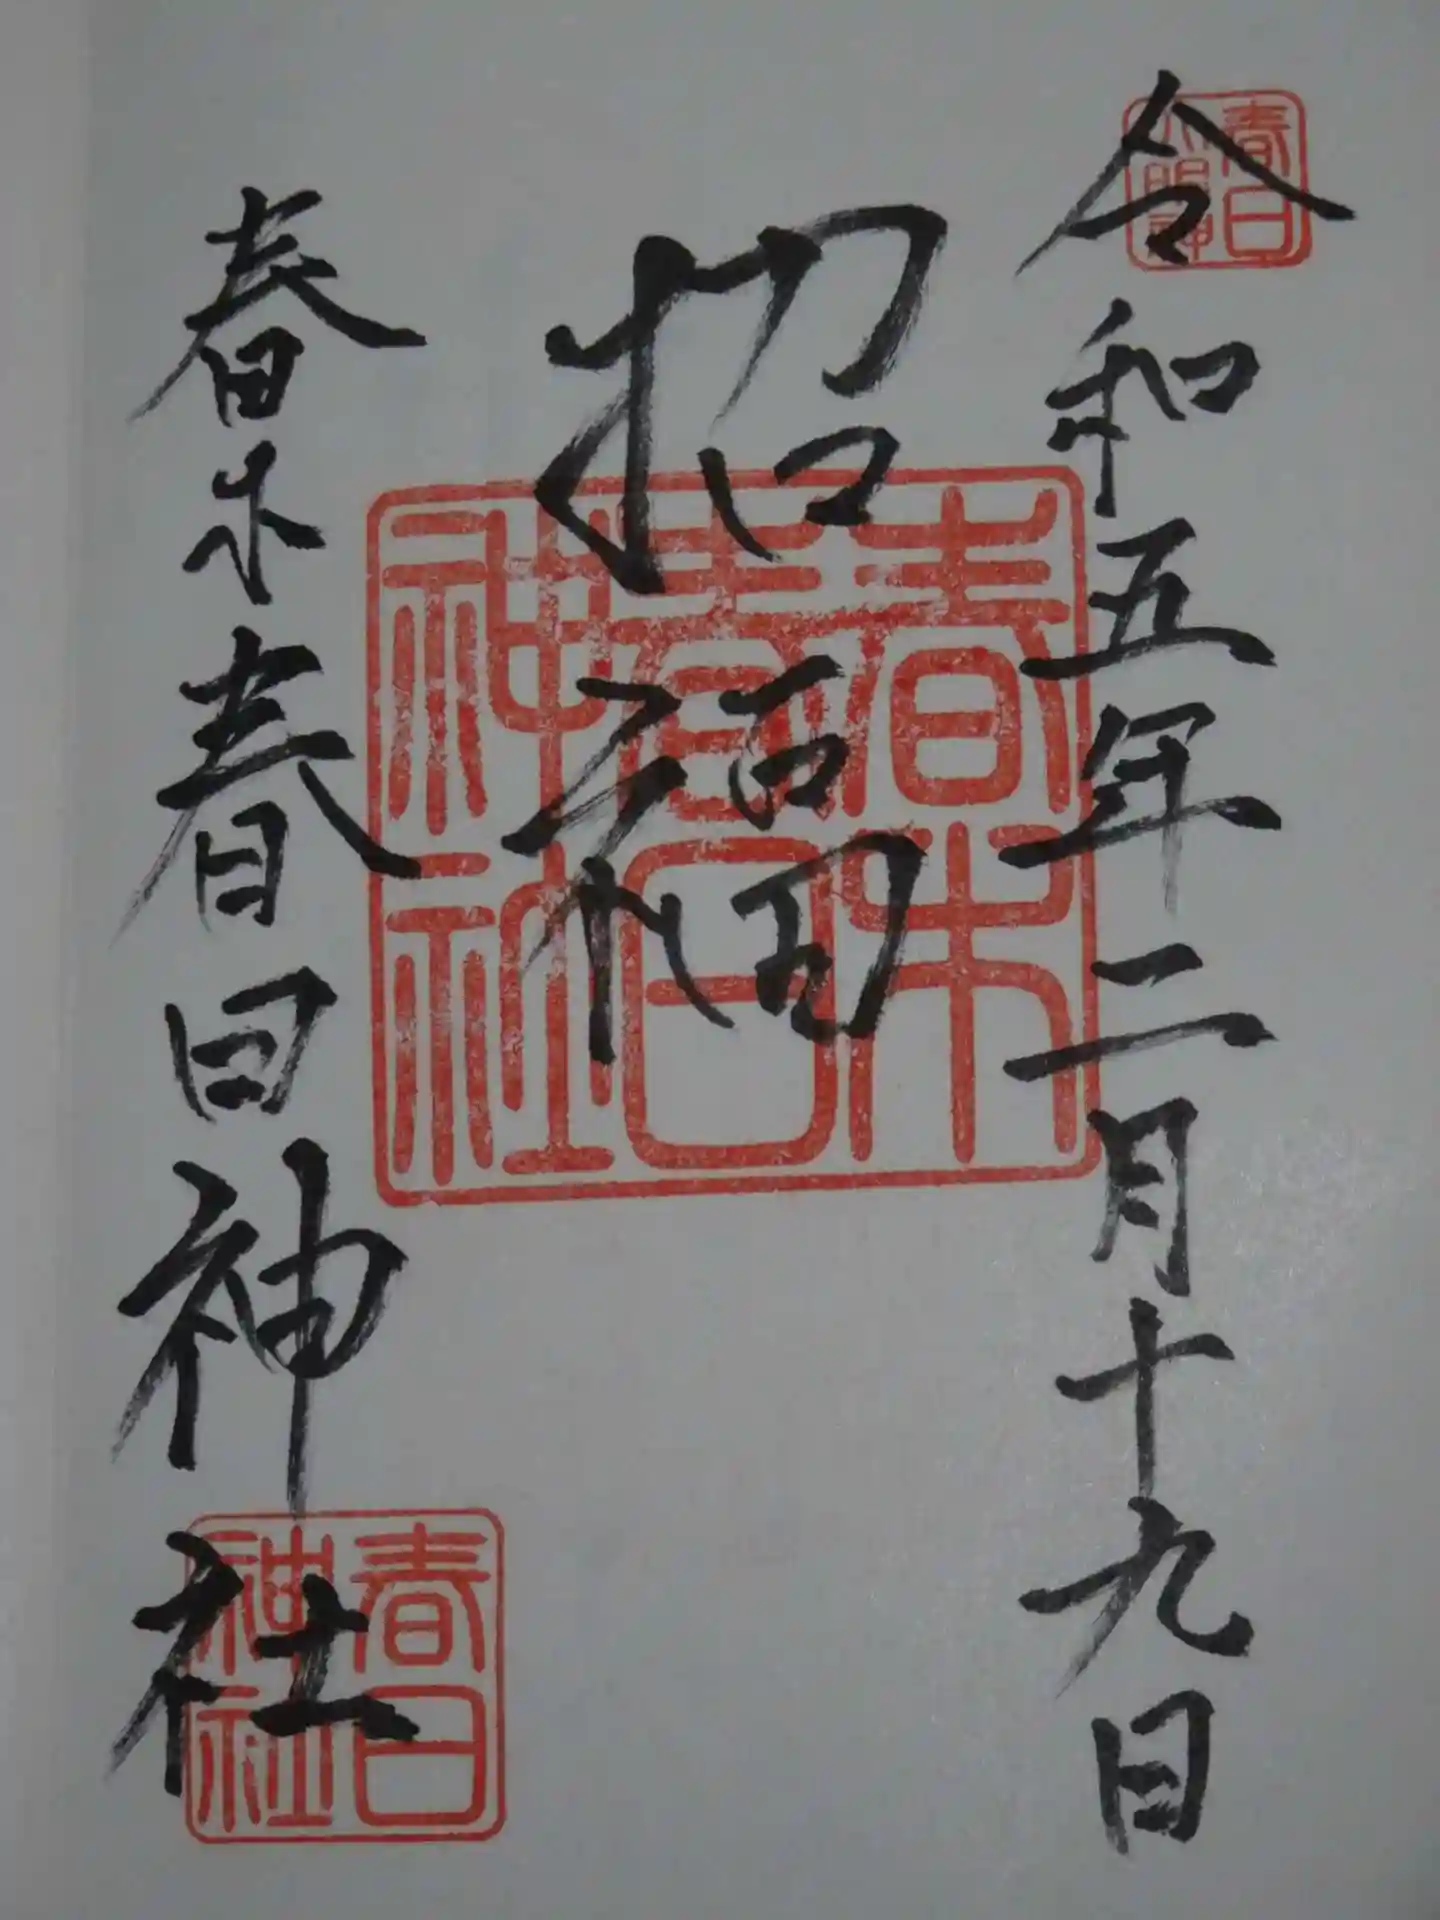 令和五年二月十九日
春日
大明神
招福
春木
春日
神社
春木春日神社
春日
神社